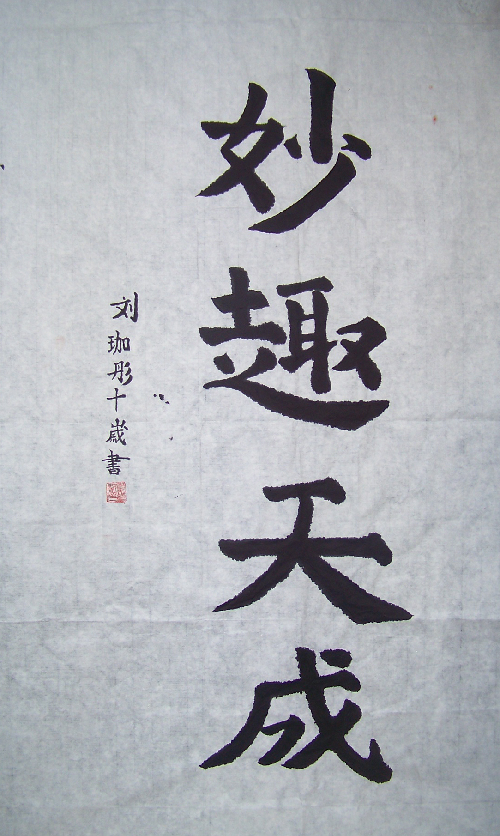 妙趣天成
刘珈彤十歲書